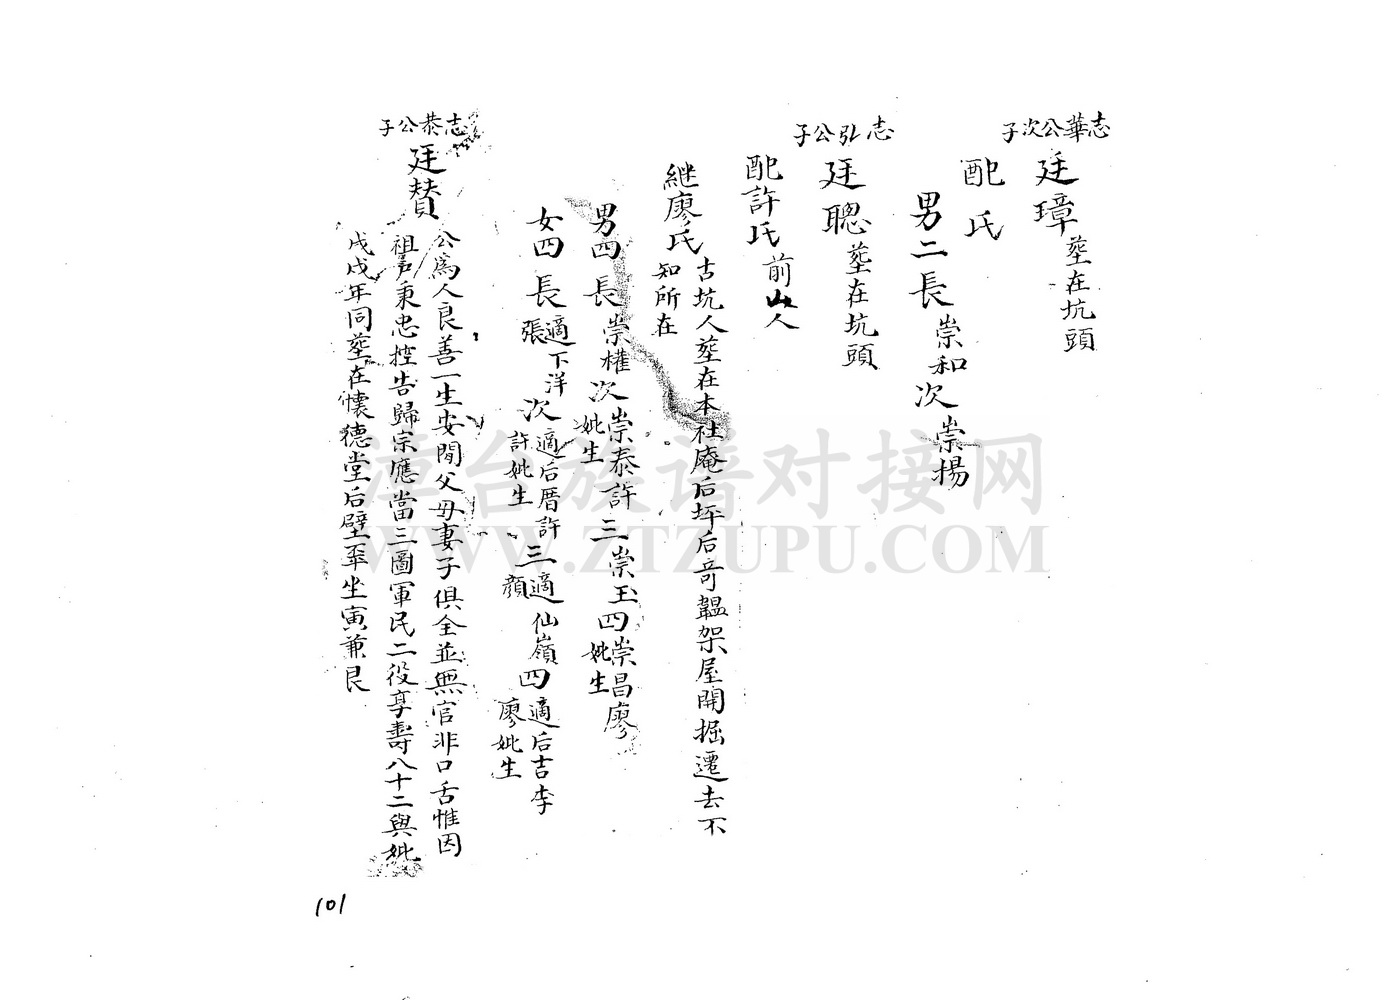 志華公次子
廷璋 葬在坑頭
配氏
男二 長崇和 次崇揚
志弘公子
廷聰 葬在坑頭
配許氏 前山人
継廖氏 古坑人葬在本社庵后坪后奇韞架屋開掘遷去不
知所在
男四 長崇權 次崇泰許妣生 三崇玉 四崇昌廖妣生
女四 長適下洋張 次適后厝許許妣生 三適仙嶺顔 四適后吉李廖妣生
志恭公子
廷賛 公爲人良善一生安閒父母妻子俱全並無官非口舌惟因
祖戸秉忠控告歸宗應當三圖軍民二役享壽八十二與妣
戊戌年同葬在懐德堂后壁 坐寅兼艮
漳台族谱对接网
WWW.ZTZUPU.COM
101